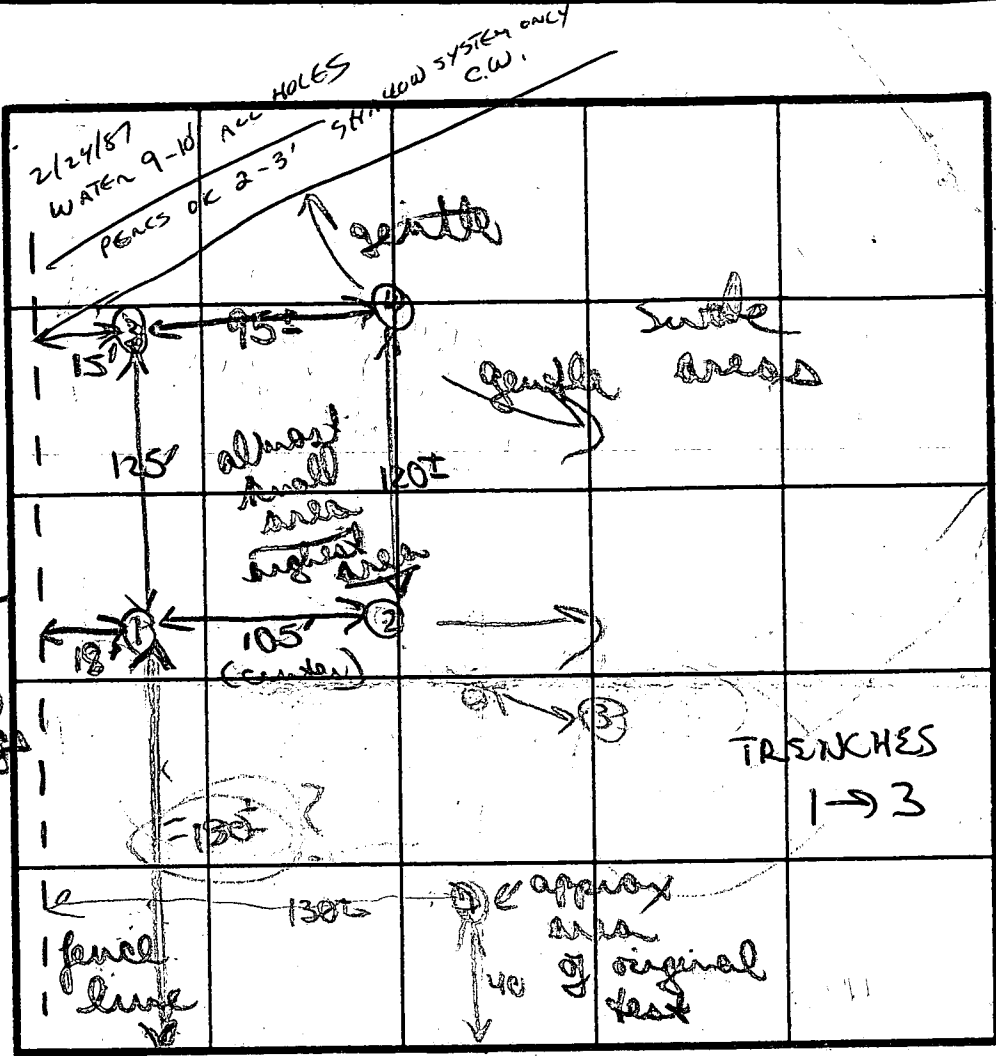 2/24/87
WATER 9-10' ALL HOLES
PERCS OK 2-3' SHALLOW SYSTEM ONLY
C.W.
gentle
4
95±
15'
swale
areas
gentle
125'
almost
knoll
area
highest
area
120±
1
105'
(center)
2
18'
3
TRENCHES
1→3
130±
130±
approx
area
of original
test
40
fence
line